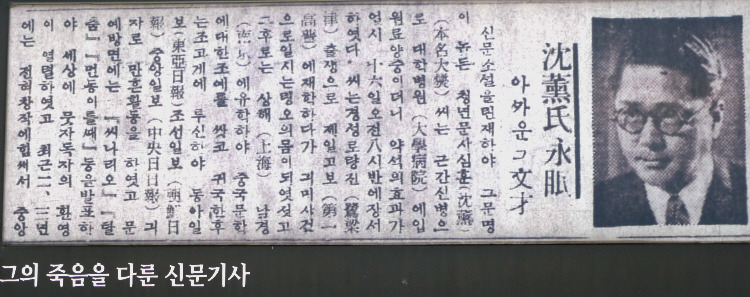 沈薰氏永眠
아까운 그 文才
신문소설을 련재하야 그 문명
이 놉든 청년문사 심훈(沈薰)
(本名大燮) 씨는 근간 신병으
로 대학병원 (大學病院) 에 입
원료양중이더니 약석의 효과가
업시 십륙일 오전 八시반에 장서
하엿다. 씨는 경성 로량진 (鷺梁
津) 출생으로 제일고보 (第一
高普) 에 재학하다가 긔미사건
으로 일시는 령오의 몸이 되엿섯고
그후로는 상해 (上海) 남경
에 유학하야 중국문학
에 대한 조예를 쌋고 귀국한 후
는 조고계에 투신하야 동아일
보 (東亞日報) 조선일보 (朝鮮日
報) 중앙일보 (中央日報) 긔
자로 만흔 활동을 하엿고 문
예방면에는 『씨나리오』 『탈
춤』 『먼동이틀때』 등을 발표하
야 세상에 뭇 자독자의 환영
이 열렬하엿고 최근 二, 三년
에는 전혀 창작에 힘써서 중앙
그의 죽음을 다룬 신문기사